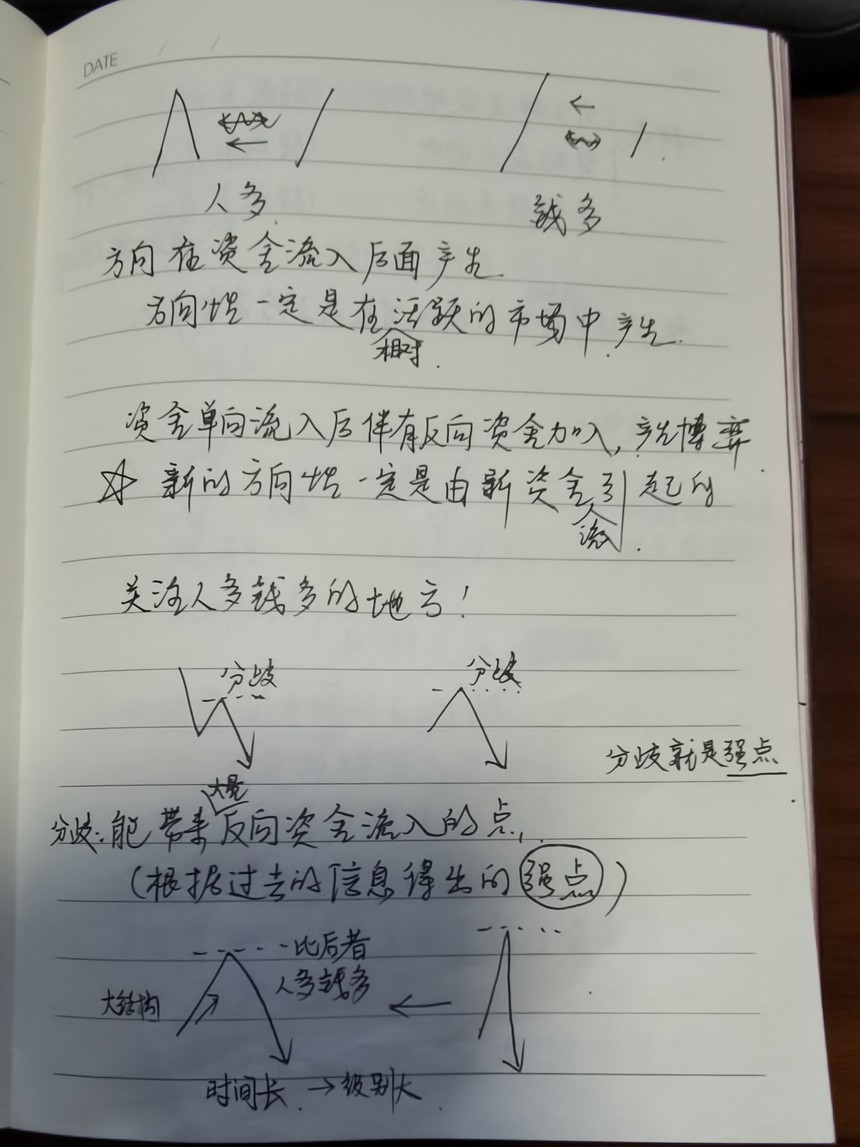 DATE / /
人多
钱多
方向在资金流入后面产生.
方向性一定是在相对活跃的市场中产生.
资金单向流入后伴有反向资金加入,产生博弈.
☆ 新的方向性一定是由新资金流入引起的.
关注人多钱多的地方!
分歧
分歧
分歧就是强点
分歧:能带来大量反向资金流入的点,
(根据过去的信息得出的强点)
比后者
人多钱多
大结构
时间长. → 级别大.